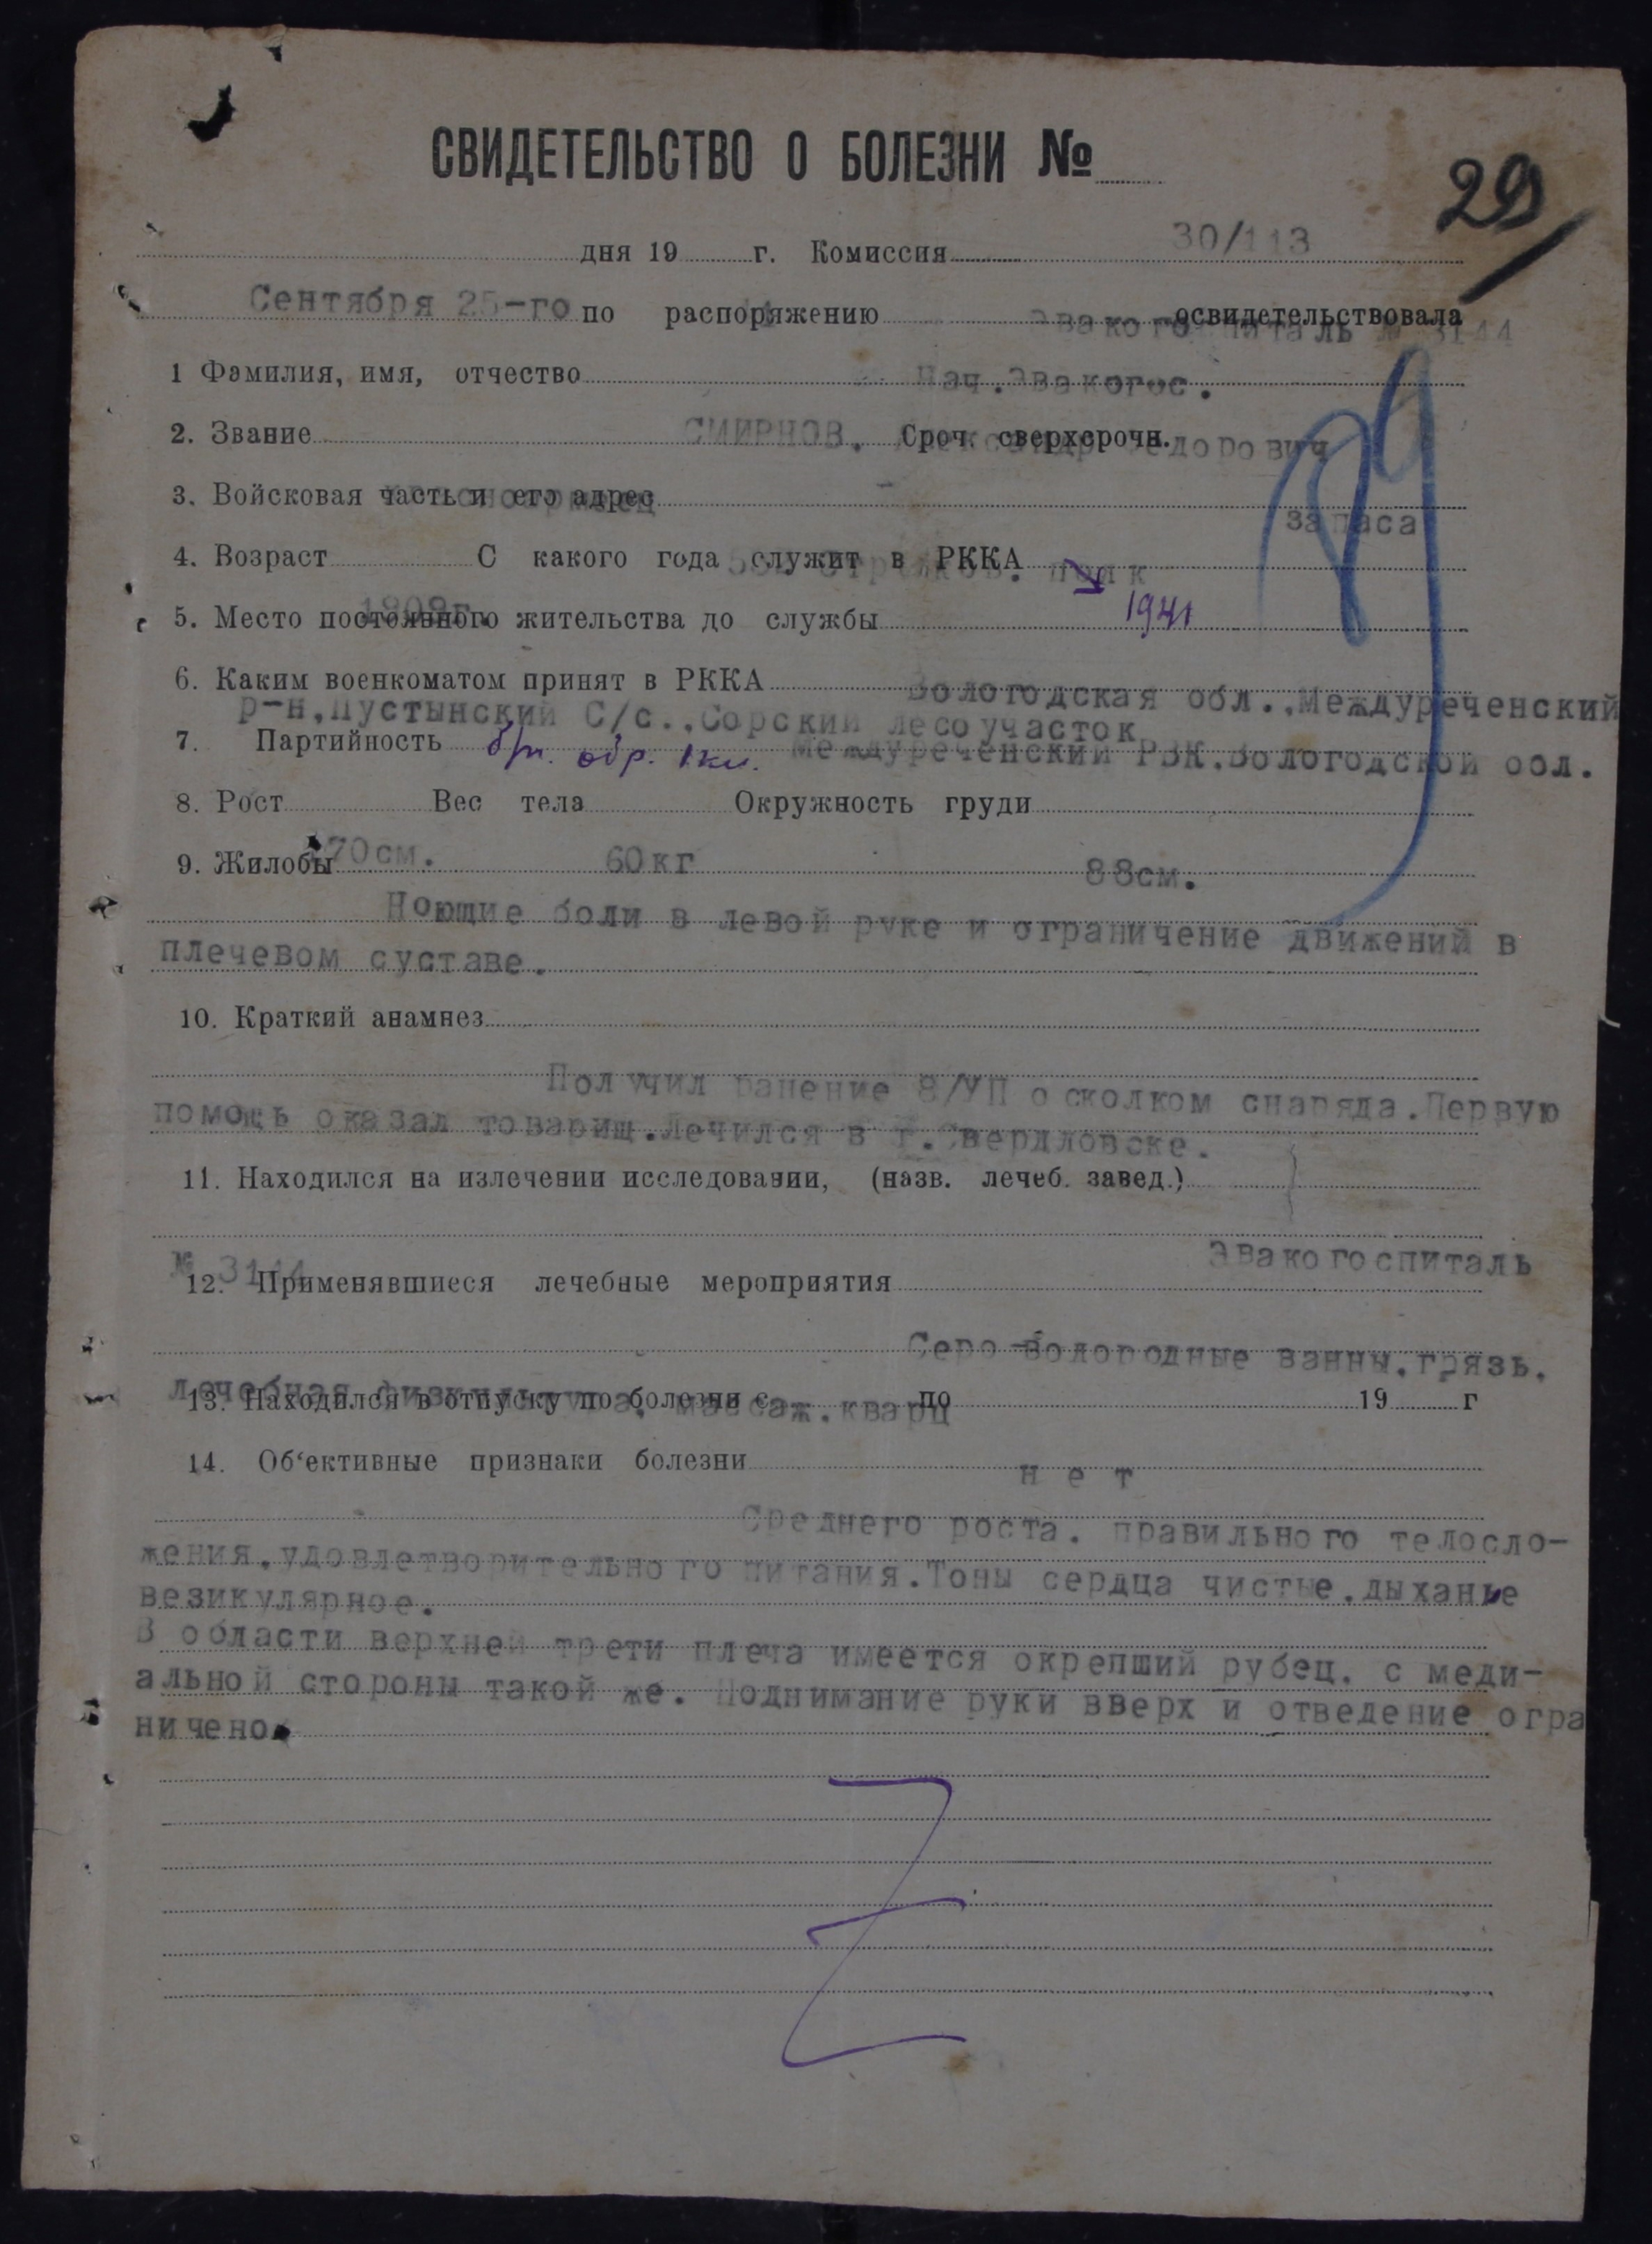 СВИДЕТЕЛЬСТВО О БОЛЕЗНИ №
29
30/113
дня 19 г. Комиссия
Сентября 25-го по распоряжению освидетельствовала
Эвакогоспиталь № 3144
1 Фамилия, имя, отчество Нач.Эвакогос.
2. Звание Сроч. сверхсрочн.
СМИРНОВ. Александр Федорович
3. Войсковая часть и его адрес
красноармеец запаса
4. Возраст С какого года служит в РККА
стрелков. полк
1941
5. Место постоянного жительства до службы
6. Каким военкоматом принят в РККА
Вологодская обл.,Междуреченский
р-н,Пустынский С/с.,Сорский лесоучасток
7. Партийность б/п. обр. 1 кл. Междуреченский РВК.Вологодской обл.
8. Рост Вес тела Окружность груди
9. Жилобы 170см. 60кг 88см.
Ноющие боли в левой руке и ограничение движений в
плечевом суставе.
10. Краткий анамнез
Получил ранение 8/УП осколком снаряда.Первую
помощь оказал товарищ.Лечился в г.Свердловске.
11. Находился на излечении исследовании, (назв. лечеб. завед.)
Эвакогоспиталь
№ 3144
12. Применявшиеся лечебные мероприятия
Серо-водородные ванны.грязь.
лечебная физкультура. массаж.кварц
13. Находился в отпуску по болезни с по 19 г
14. Об‘ективные признаки болезни
н е т
Среднего роста. правильного телосло-
жения.удовлетворительного питания.Тоны сердца чистые.дыханье
везикулярное.
В области верхней трети плеча имеется окрепший рубец. с меди-
альной стороны такой же. Поднимание руки вверх и отведение огра
ничено.